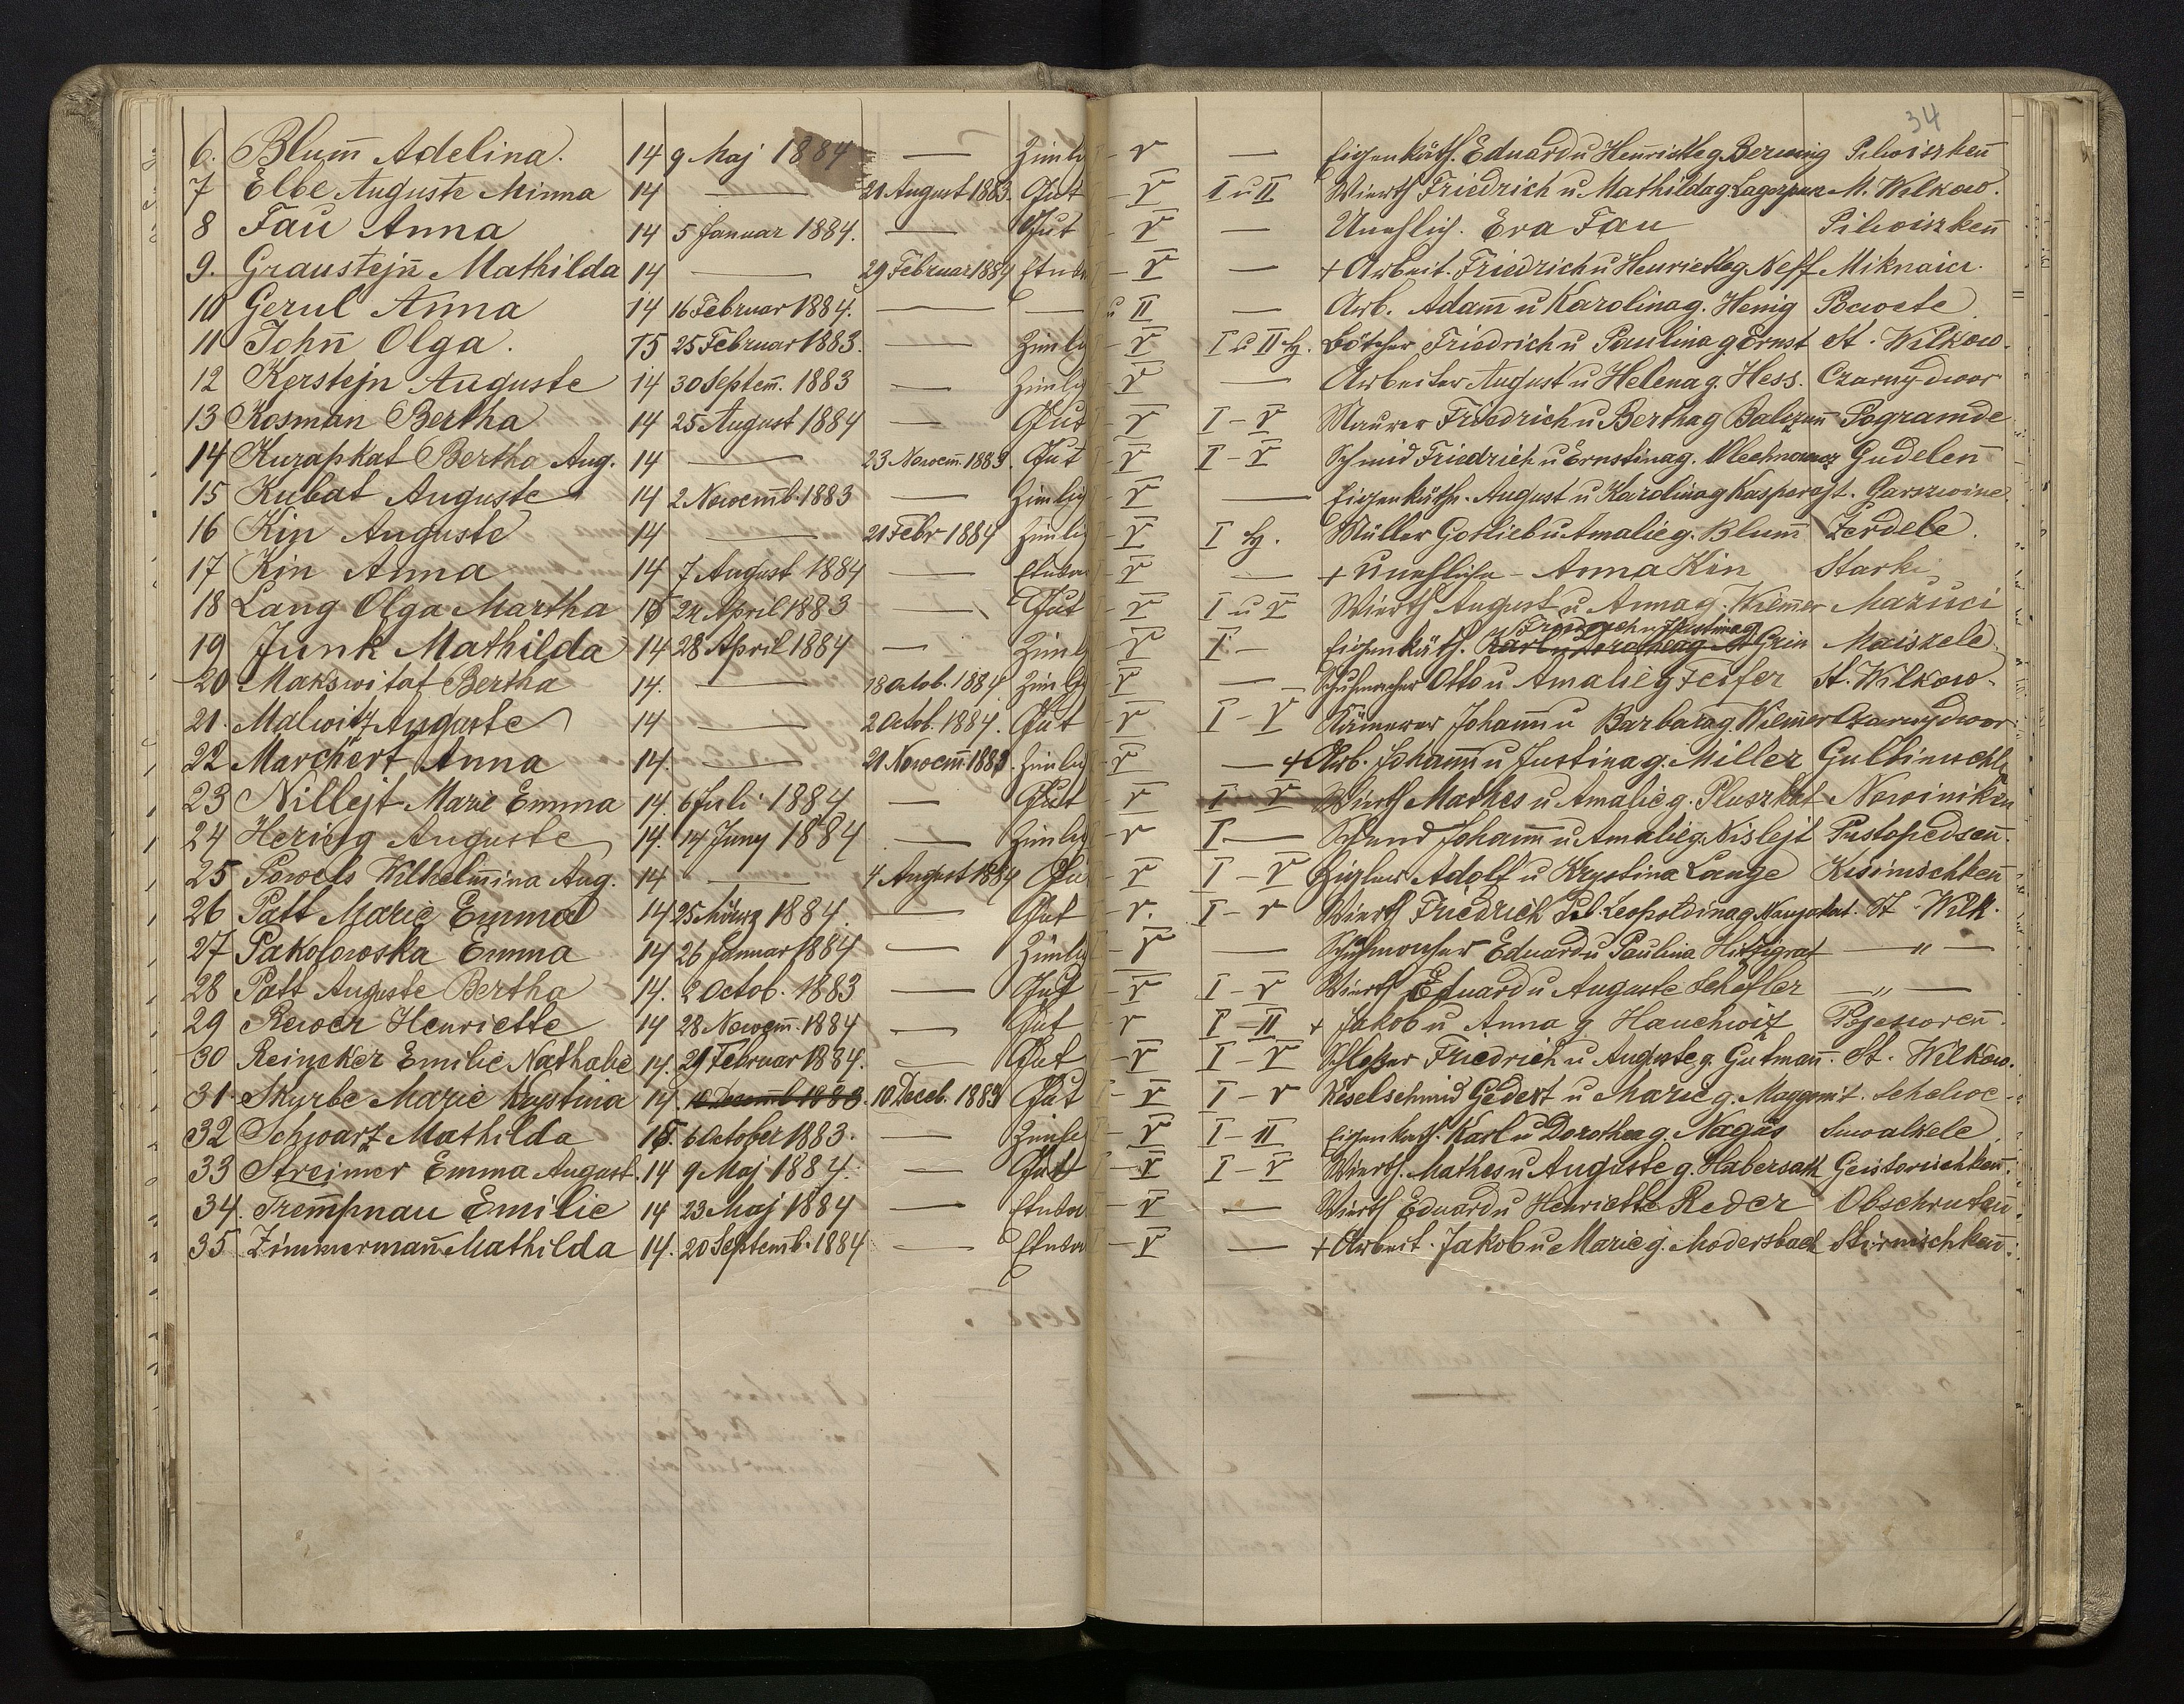 34
6. Blum̄ Adelina. 14 9 Maj 1884 — Zimlig – V — Eigenkäth. Eduard u Henriette g Berwing Pilwiszken̄
7 Elbe Auguste Minna 14 — 21 August 1883. Gut – V I u II Wierth Friedrich u. Mathilda g M. Wilkow.
8 Fau Anna 14 5 Januar 1884. — Gut – V — Unehlich. Eva Fau Pilwiszken̄
9. Graustejn̄ Mathilda 14 — 29 Februar 1884 Etwa – V — + Arbeit. Friedrich u Henriette g Neff Miknaici.
10 Gerul Anna 14 16 Februar 1884. — — u II — Arb. Adam̄ u Karolina g. Henig Powete
11 John̄ Olga. 15 25 Februar 1883. — Zimlig – V I u II H. Bötcher Friedrich u Paulina g Ernst St. Wilkow.
12 Kerstejn Auguste 14 30 Septem̄. 1883 — Zimlig – V — Arbeiter August u Helena g. Hess. Czarnydwor
13 Kosman Bertha 14 25 August 1884 — Gut – V I – V Maurer Friedrich u Bertha g Pogramde
14 Kurapkat Bertha Aug. 14 — 23 Nowem̄. 1883. Gut – V I – V Schmid Friedrich u Ernstina g. Gudelen̄
15 Kubat Auguste 14 2 Nowem̄b. 1883 — Zimlig – V — Eigenkäth. August u Karolina g Garszwine
16 Kin Auguste 14 — 21 Febr 1884 Zimlig – V I H. Müller Gotlieb u Amalie g. Blum̄ Zerdele.
17 Kin Anna 14 7 August 1884 — Etwa – V — + Unehliche – Anna Kin Starki
18 Lang Olga Martha 15 24 April 1883 — Gut – V I u V Wierth August u Anna g. Wiem̄er Mazuci
Friedrich u Justina g
19 Junk Mathilda 14 28 April 1884 — Zimlig V I – Eigenkäth. Karl u Dorothea g Grin Maiszele
20 Makswitat Bertha 14. — 18 Octob. 1884 Zimlig – V — Schuhmacher Otto u Amalie g Feifer St. Wilkow.
21. Malwitz Auguste 14 — 2 Octob. 1884. Gut – V I – V Kämerer Johan̄ u Barbara g. Wiem̄er Czarnydwor
22 Marchert Anna 14. — 21 Nowem̄ 1883. Zimlig – V — + Arb. Johan̄ u Justina g. Miller
23 Nillejt Marie Emma 14. 6 Juli 1884 — Gut – V I – V Wierth Mathes u Amalie g. Pluszkat Nowiniken
24 Hering Auguste 14. 14 Juny 1884 — Zimlig – V I — Johan̄ u Amalie g. Nislejt Pustopedzen̄.
25 Powels Wilhelm̄ina Aug. 14 — 4 August 1884 Gut – V I – V Zigler Adolf u Krystina Lange Kisinischken̄
26 Patt Marie Emma 14 25 März 1884. — Gut – V. I – V Wierth Friedrich Leopoldina g St. Wilk.
27 Pakolowska Emma 14 26 Januar 1884 — Zimlig – V — Schuhmacher Eduard u Paulina Hirszgraf — " —
28 Patt Auguste Bertha 14. 2 Octob. 1883 — Gut – V I – V Wierth Eduard u Auguste Schefler — " —
29 Rewer Henriette 14 28 Nowem̄. 1884 — Gut – V I – II + Jakob u Anna g Hauchwitz
30 Reinecker Emilie Nathalie 14. 29 Februar 1884. — Gut – V I – V Schloßer Friedrich u Auguste g. Gutman̄. St. Wilkow.
31. Skurbe Marie Krystina 14. 10 Decem̄b 1883. 10 Deceb. 1883 Gut – V I – V Keselschmid Gedert u Marie g.
32 Schwarz Mathilda 15. 6 October 1883. — Zimlig – V I – II Eigenkath. Karl u Dorothea g. Nagas Suwalkele
33 Streimer Emma August. 14 9 Maj 1884. — Gut – V I – V Wierth. Mathes u Auguste g. Habersath
34. Trem̄pnau Emilie 14 23 Maj 1884 — Etwa – V — Wierth Eduard u Henriette Reder Obschruten̄.
35 Zimmerman̄ Mathilda 14. 20 Septemb. 1884 — Etwa – V — + Arbeit. Jakob u Marie g. Modersbach Skirnischken̄.